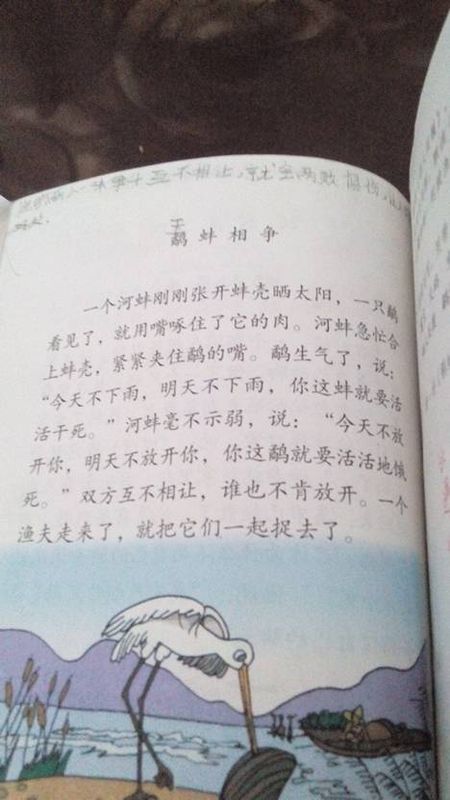 互不相让,就会两败
好处.
鹬蚌相争
一个河蚌刚刚张开蚌壳晒太阳，一只鹬
看见了，就用嘴啄住了它的肉。河蚌急忙合
上蚌壳，紧紧夹住鹬的嘴。鹬生气了，说：
“今天不下雨，明天不下雨，你这蚌就要活
活干死。”河蚌毫不示弱，说：“今天不放
开你，明天不放开你，你这鹬就要活活地饿
死。”双方互不相让，谁也不肯放开。一个
渔夫走来了，就把它们一起捉去了。